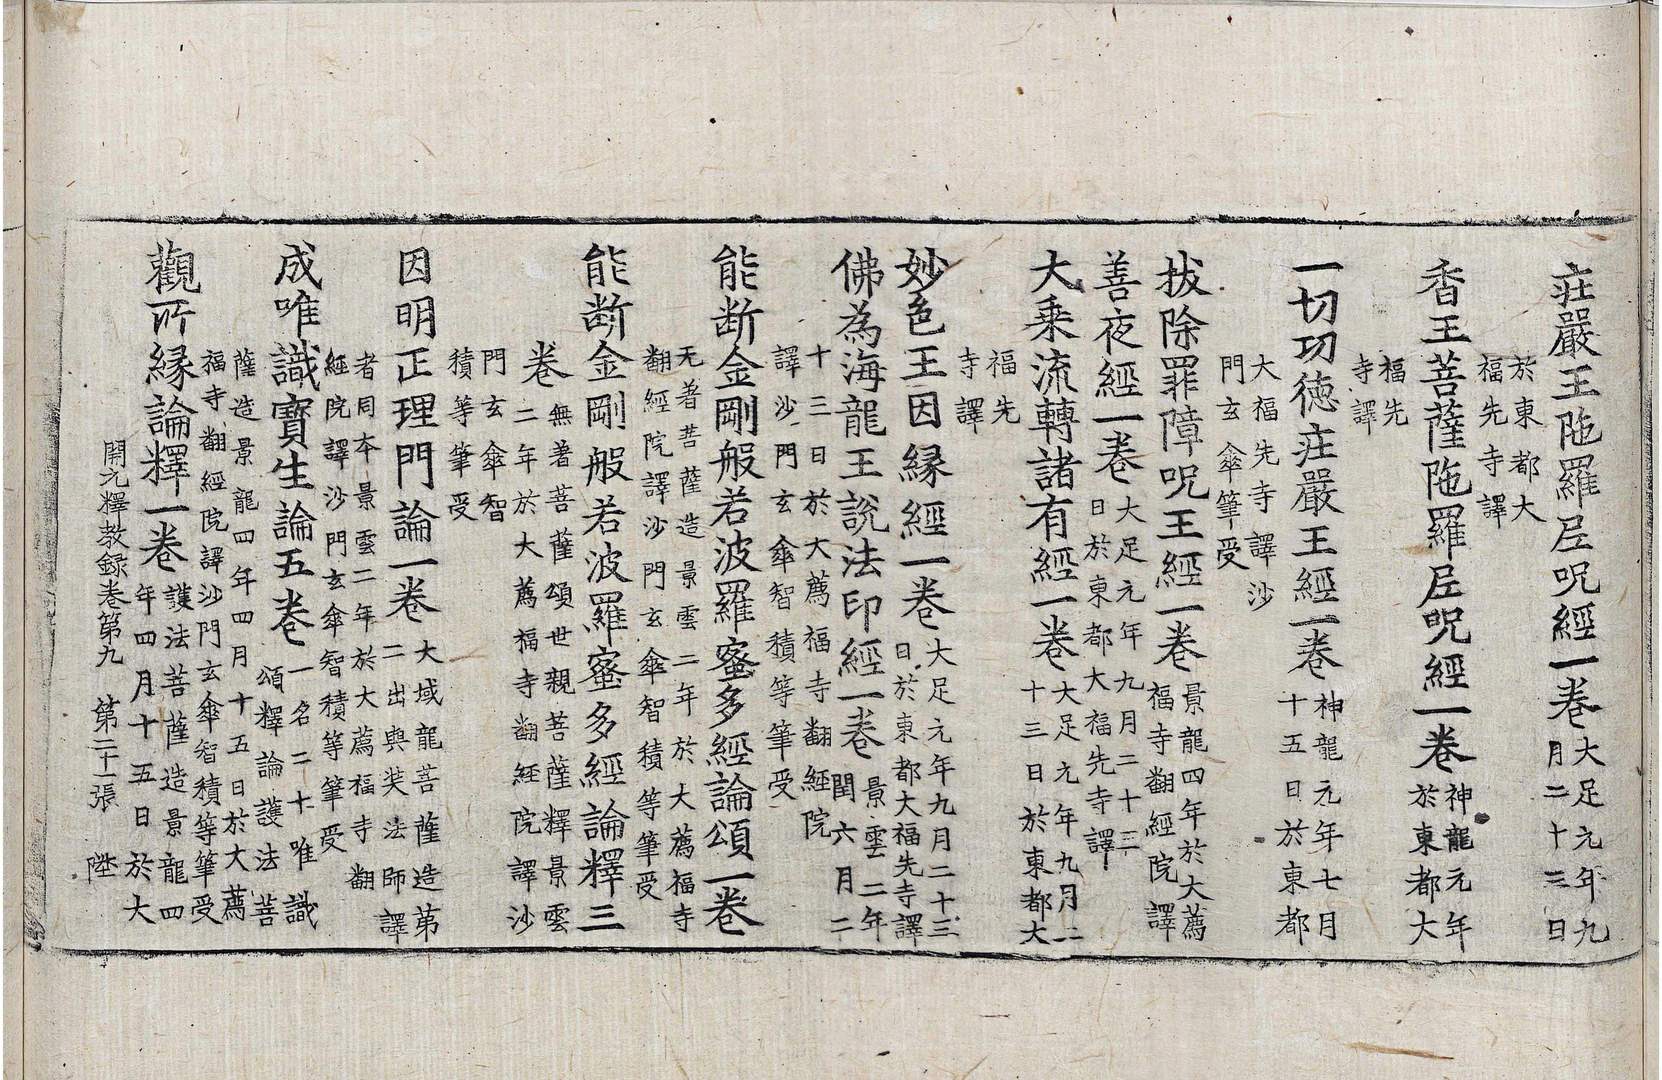 莊嚴王陁羅尼呪經一卷大足元年九月二十三日
於東都大福先寺譯
香王菩薩陁羅尼呪經一卷神龍元年於東都大
福先寺譯
一切功徳莊嚴王經一卷神龍元年七月十五日於東都
大福先寺譯沙門玄傘筆受
拔除罪障呪王經一卷景龍四年於大薦福寺翻經院譯
善夜經一卷大足元年九月二十三日於東都大福先寺譯
大乗流轉諸有經一卷大足元年九月二十三日於東都大
福先寺譯
妙色王因縁經一卷大足元年九月二十三日於東都大福先寺譯
佛為海龍王說法印經一卷景雲二年閏六月二
十三日於大薦福寺翻經院譯沙門玄傘智積等筆受
能断金剛般若波羅蜜多經論頌一卷
无著菩薩造景雲二年於大薦福寺翻經院譯沙門玄傘智積等筆受
能断金剛般若波羅蜜多經論釋三
卷無著菩薩頌世親菩薩釋景雲二年於大薦福寺翻経院譯沙
門玄傘智積等筆受
因明正理門論一卷大域龍菩薩造第二出與奘法師譯
者同本景雲二年於大薦福寺翻經院譯沙門玄傘智積等筆受
成唯識寳生論五卷一名二十唯識頌釋論護法菩
薩造景龍四年四月十五日於大薦福寺翻經院譯沙門玄傘智積等筆受
觀所縁論釋一卷護法菩薩造景龍四年四月十五日於大
開元釋教録卷第九 第二十一張 陞